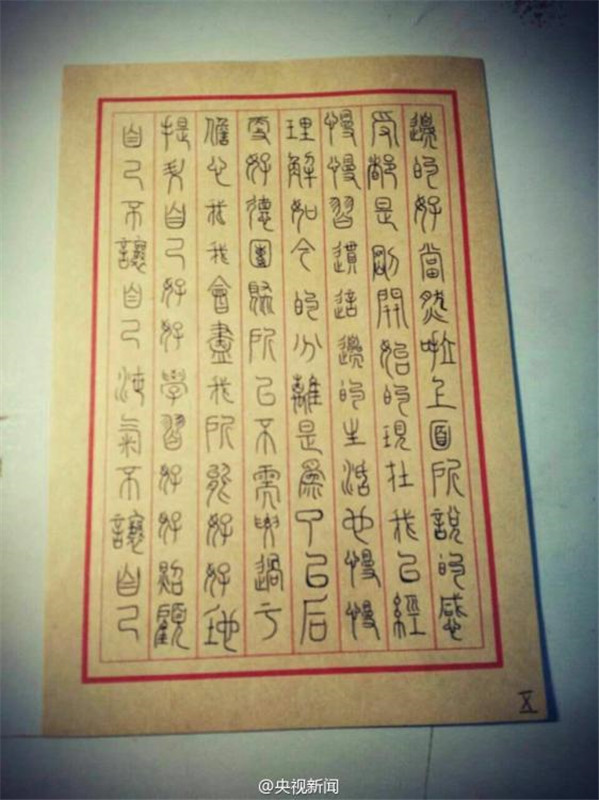 邊的好當然啦上面所說的感
受都是剛開始的現在我已經
慢慢習慣這邊的生活也慢慢
理解如今的分離是為了以后
更好德團聚所以不需要過于
擔心我我會盡我所能好好地
提升自己好好學習好好照顧
自己不讓自己淘氣不讓自己
X
@央视新闻